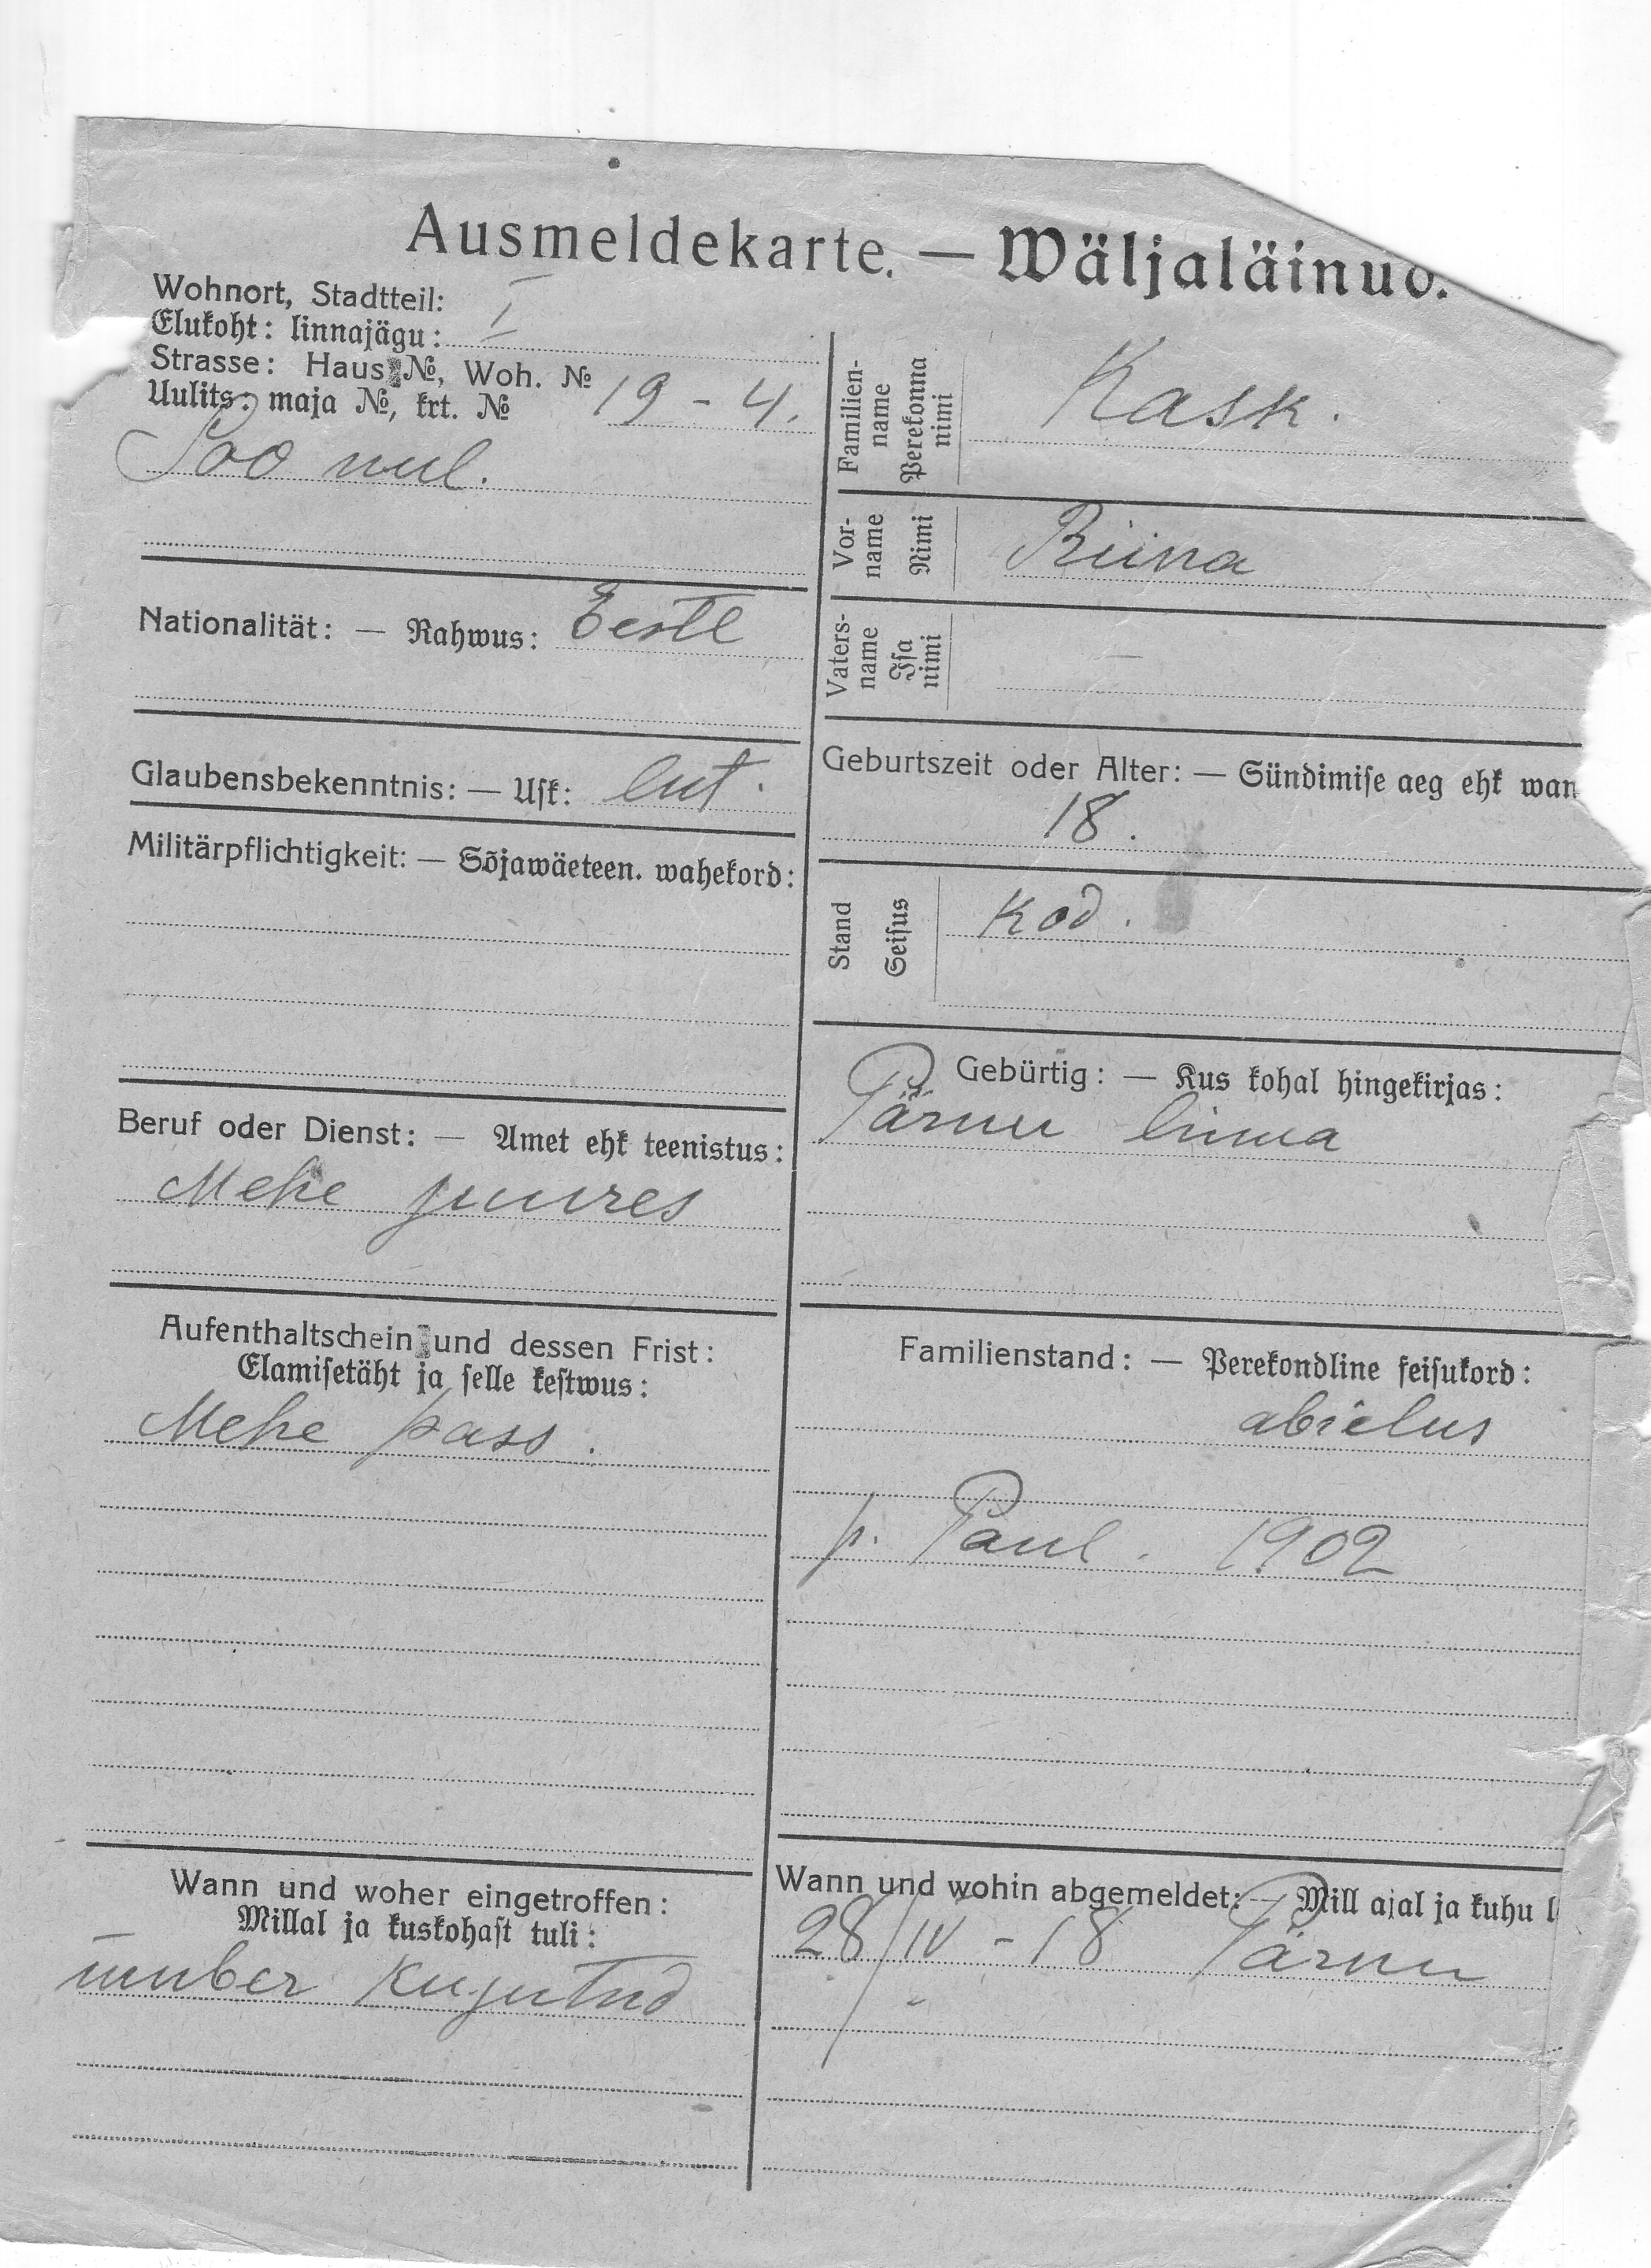 Ausmeldekarte. — Wäljaläinud.
Wohnort, Stadtteil:
Elukoht: linnajägu: I
Strasse: Haus №, Woh. №
Uulits: maja №, krt. № 19 - 4.
Soo uul.
Nationalität: — Rahwus: Eestl
Glaubensbekenntnis: — Usk: lut.
Militärpflichtigkeit: — Sõjawäeteen. wahekord:
Beruf oder Dienst: — Amet ehk teenistus:
Mehe juures
Aufenthaltschein und dessen Frist:
Elamisetäht ja selle kestwus:
Mehe pass.
Wann und woher eingetroffen:
Millal ja kuskohast tuli:
ümber kirjutud
Familien-
name
Perekonna
nimi
Kask.
Vor-
name
Nimi
Riina
Vaters-
name
Isa
nimi
—
Geburtszeit oder Alter: — Sündimise aeg ehk wan
18.
Stand
Seisus
Kod.
Gebürtig: — Kus kohal hingekirjas:
Pärnu linna
Familienstand: — Perekondline seisukord:
abielus
p. Paul. 1902
Wann und wohin abgemeldet: — Mill ajal ja kuhu l
28/IV - 18 Pärnu